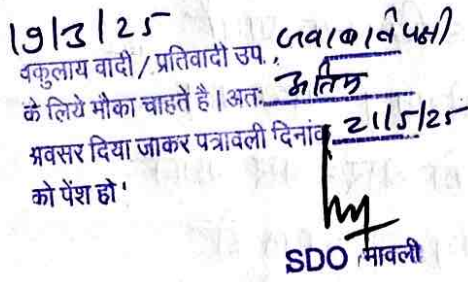 19/3/25
वकुलाय वादी / प्रतिवादी उप., जवाब विपक्षी
के लिये मौका चाहते है। अतः अंतिम
अवसर दिया जाकर पत्रावली दिनांक 21/5/25
को पेंश हो '
SDO मावली